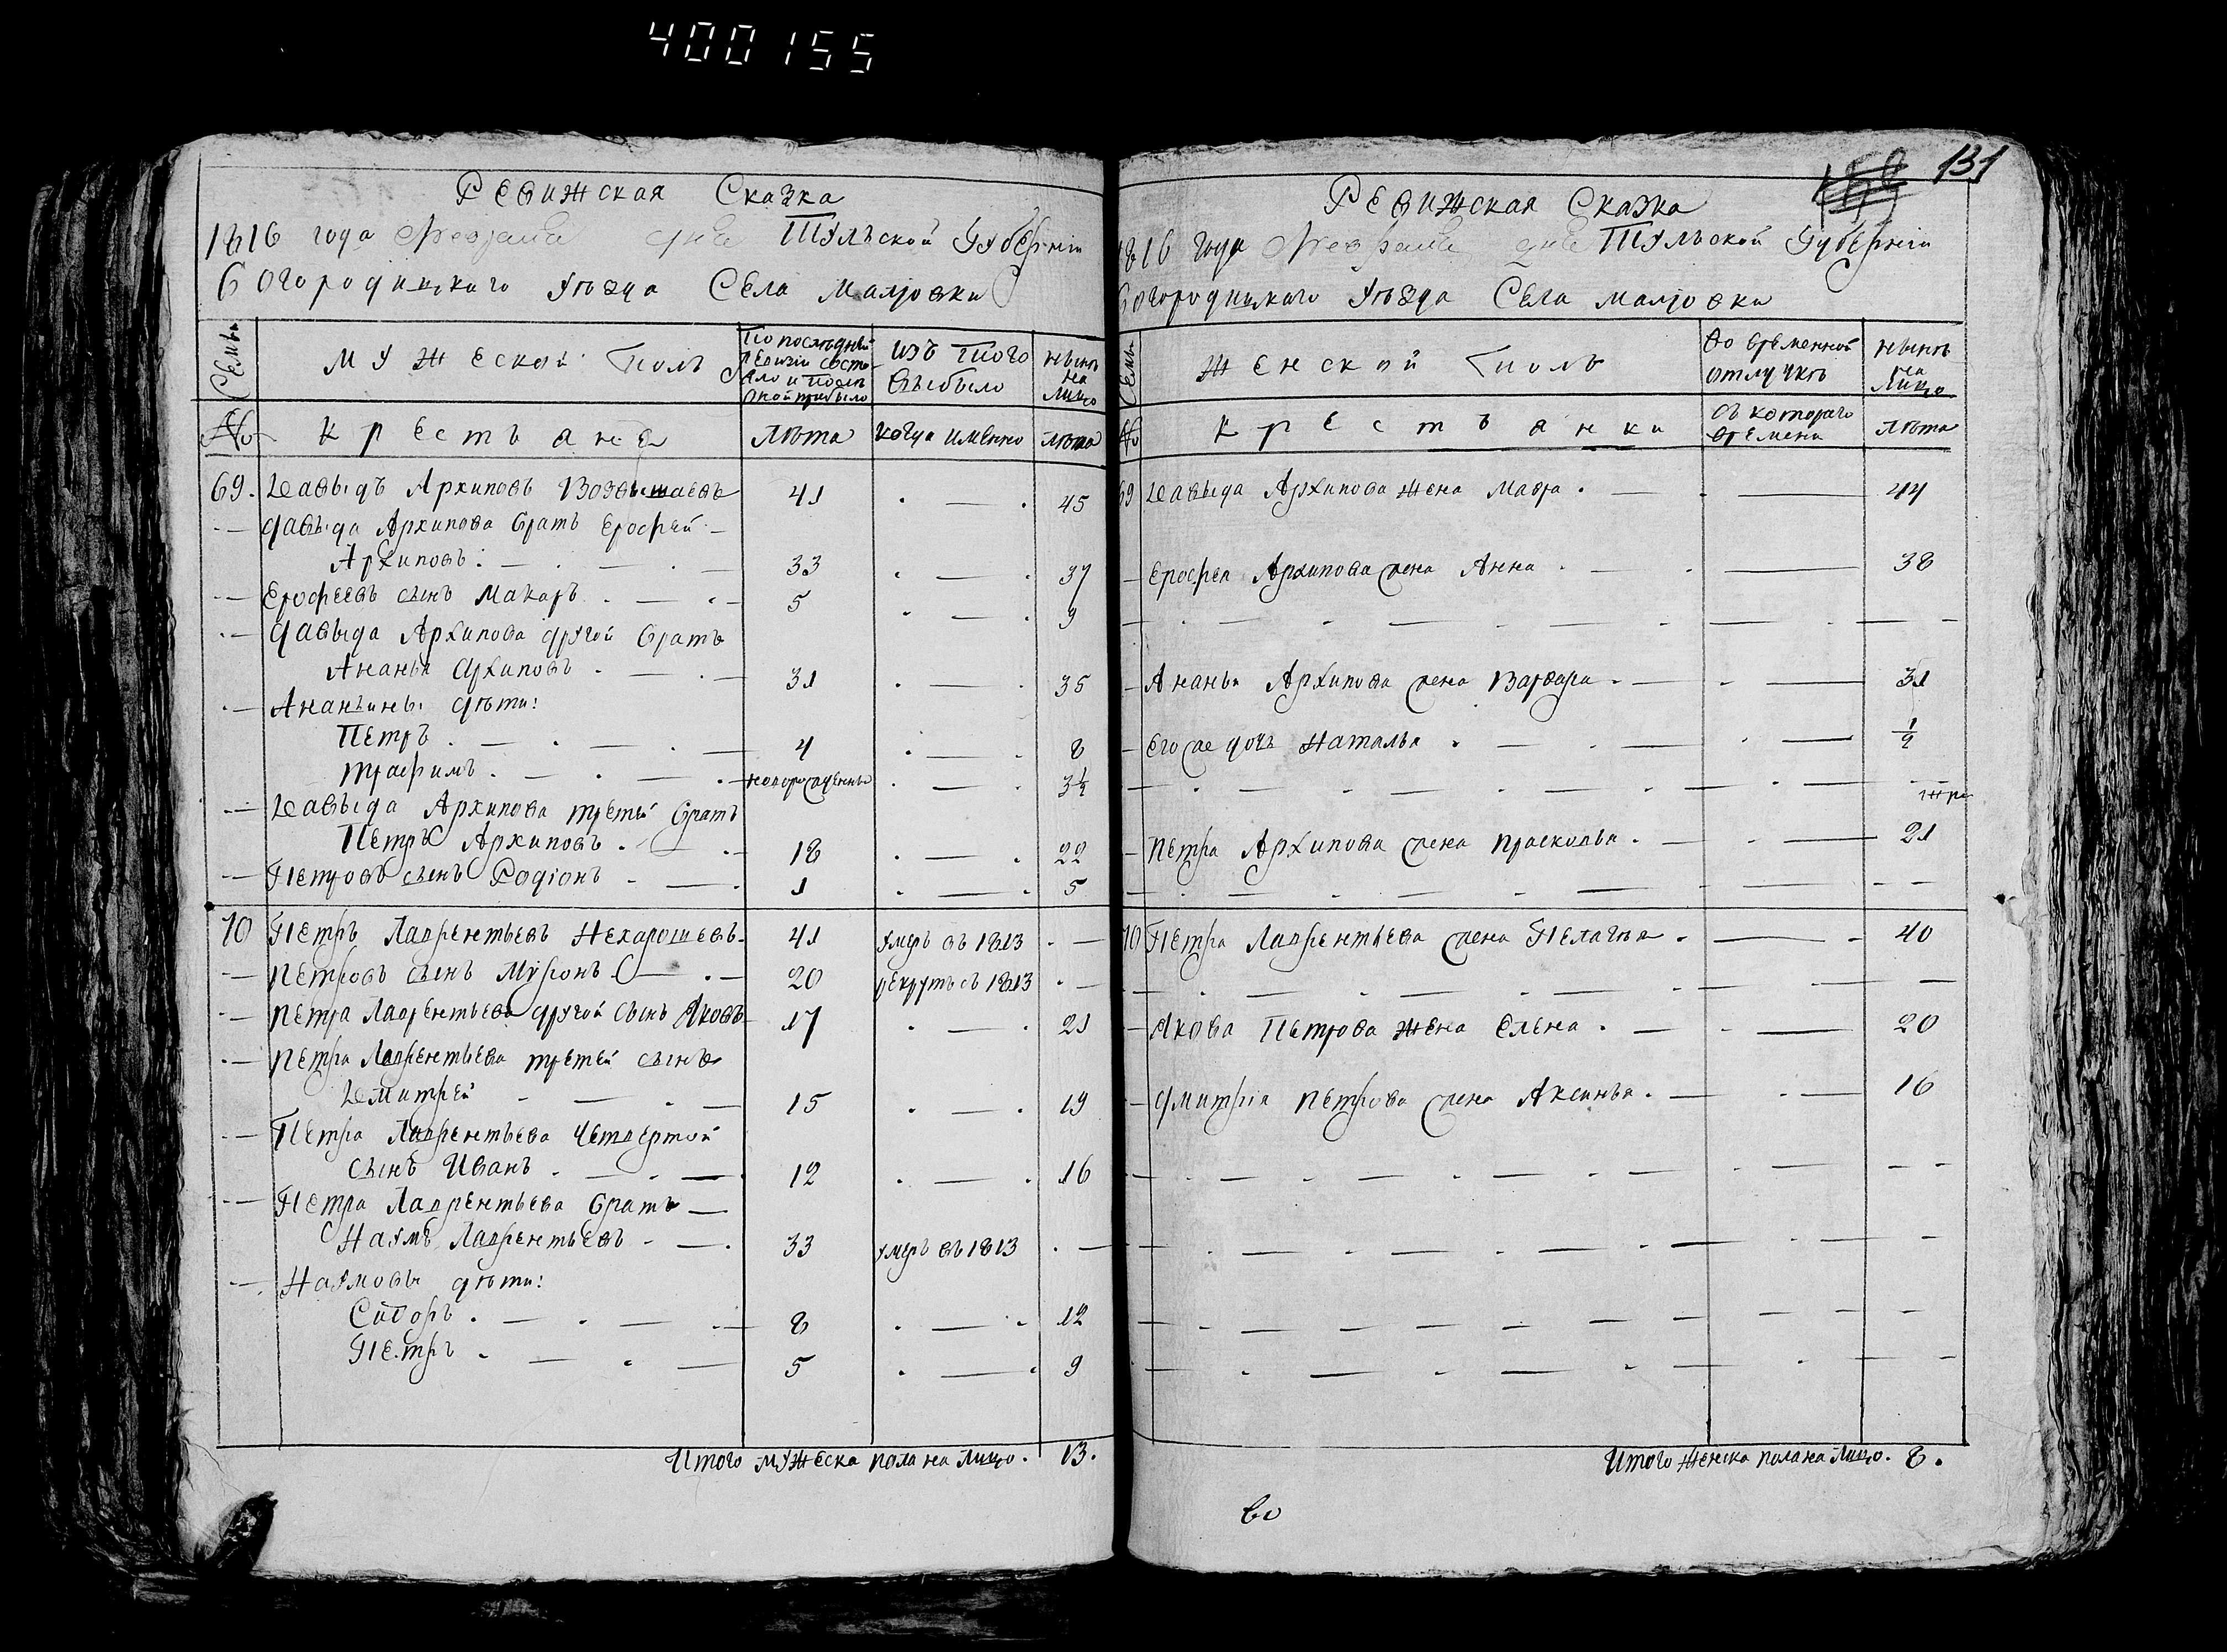 400155
Ревижская Сказка
1816 года Февраля дня Тульской Губернiи
Богородицкаго уѣзда Села Малювки
Семьи
Мужеской Полъ
По последней ревизiи состояло и после оной прибыло
Изъ того выбыло
ныне на лицо
№
крестьяне
лѣта
когда именно
лѣта
69. Давыдъ Архиповъ Возвышаевъ 41 45
Давыда Архипова братъ Ерофей
Архиповъ 33 37
Ерофеевъ сынъ Макаръ 5 9
Давыда Архипова другой братъ
Ананья Архиповъ 31 35
Ананьины дѣти:
Петръ 4 8
Трафимъ новорожденный 3½
Давыда Архипова третей братъ
Петръ Архиповъ 18 22
Петровъ сынъ Родiонъ 1 5
70 Петръ Лаврентьевъ Нехарошевъ 41 умеръ въ 1813
Петровъ сынъ Миронъ 20 рекрутъ съ 1813
Петра Лаврентьева другой сынъ Яковъ 17 21
Петра Лаврентьева третей сынъ
Дмитрей 15 19
Петра Лаврентьева четвертой
сынъ Иванъ 12 16
Петра Лаврентьева братъ
Наумъ Лаврентьевъ 33 умеръ въ 1813
Наумовы дѣти:
Сидоръ 8 12
Петръ 5 9
Итого мужеска пола на лицо. 13.
131
Ревижская Сказка
1816 года Февраля дня Тульской Губернiи
Богородицкаго уѣзда Села Малювки
Семьи
Женской Полъ
Во временной отлучкѣ
нынѣ на лицо
№
крестьянки
съ котораго времени
лѣта
69 Давыда Архипова жена Мавра 44
Ерофея Архипова жена Анна 38
Ананья Архипова жена Варвара 31
Его же дочь Наталья ½
Петра Архипова жена Прасковья 21
70 Петра Лаврентьева жена Пелагья 40
Якова Петрова жена Елена 20
Дмитрiя Петрова жена Аксинья 16
Итого женска пола на лицо. 8.
во